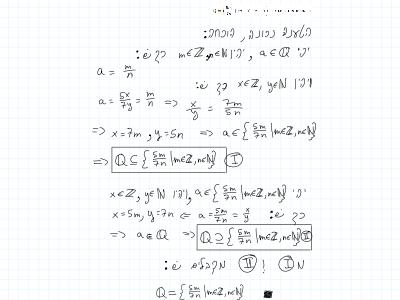 הטענה נכונה, הוכחה:
יהי a ∈ ℚ, יהיו m∈ℤ, n∈ℕ כך ש:
a = m/n
ויהיו x∈ℤ, y∈ℕ כך ש:
a = 5x/7y = m/n => x/y = 7m/5n
=> x=7m, y=5n => a∈{5m/7n |m∈ℤ,n∈ℕ}
=> ℚ⊆{5m/7n |m∈ℤ,n∈ℕ} I
יהי a∈{5m/7n |m∈ℤ,n∈ℕ}, ויהיו x∈ℤ, y∈ℕ
כך ש: a=5m/7n=x/y <= x=5m, y=7n
=> a∈ℚ => ℚ⊇{5m/7n |m∈ℤ,n∈ℕ} II
מ I ו II מקבלים ש:
ℚ={5m/7n |m∈ℤ,n∈ℕ} ■